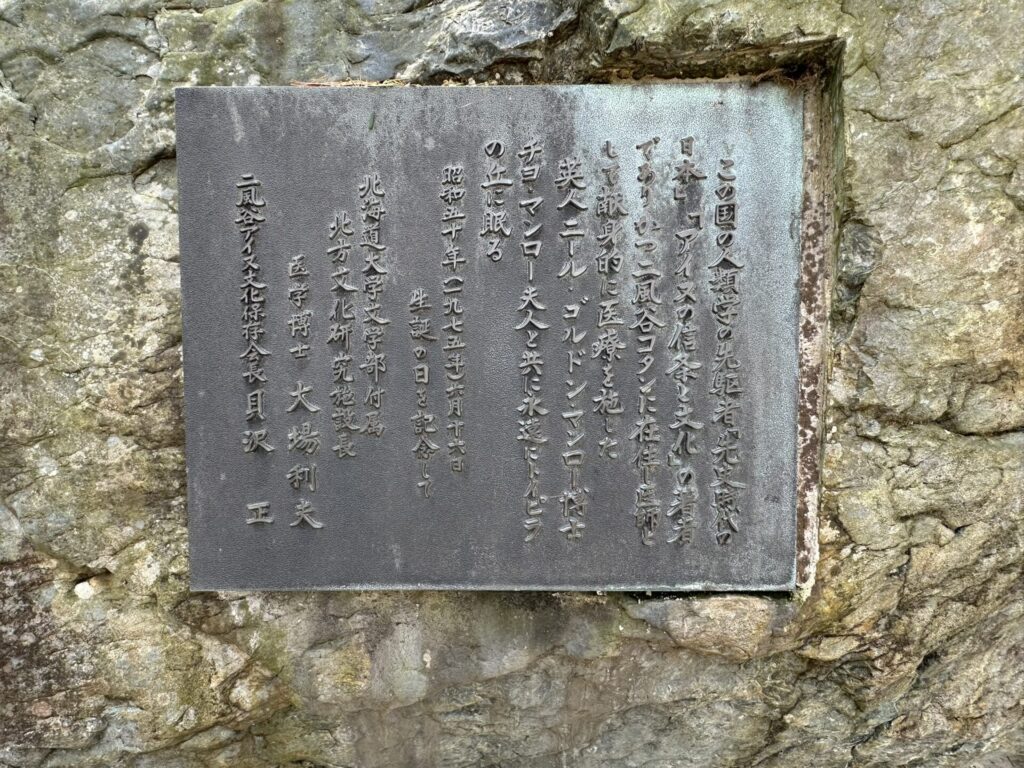 この国の人類学の先駆者「先史時代の
日本」「アイヌの信条と文化」の著者
であり かつ二風谷コタンに在住中医師と
して献身的に医療を施した
英人ニール・ゴルドン・マンロー博士
チヨ・マンロー夫人と共に永遠にトイピラ
の丘に眠る
昭和五十年(一九七五年)六月十六日
生誕の日を記念して
北海道大学文学部付属
北方文化研究施設長
医学博士 大場利夫
二風谷アイヌ文化保存会長 貝沢 正